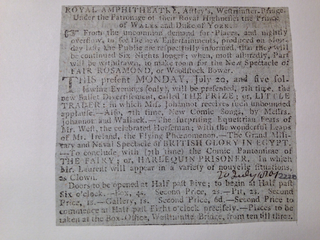 ROYAL AMPHITHEATRE, Astley's, Westminster-Bridge.
Under the Patronage of their Royal Highnesses the Prince
of WALES and Duke of YORK.
From the uncommon demand for Places, and nightly
overflow, to see the new Entertainments, produced on Mon-
day last, the Public are respectfully informed, that they will
be continued Six Nights longer; when, most assuredly, Part
will be withdrawn, to make room for the new Spectacle of
FAIR ROSAMOND, or Woodstock Bower.
This present MONDAY, July 20, and five fol-
lowing Evenings (only), will be presented, 7th time, the
new Ballet Divertisement, called THE PRIZE; or, LITTLE
TRADER: in which Mrs. Johannot receives such unbounded
applause.—Also, 7th time, New Comic Songs, by Messrs.
Johannot and Wallack.—The surprising Equestrian Feats of
Mr. Wast, the celebrated Horseman; with the wonderful Leaps
of Mr. Ireland, the Flying Phenomenon.—The Grand Mili-
tary and Naval Spectacle of BRITISH GLORY IN EGYPT.
—To conclude with (7th time) the Comic Pantomime of
THE FAIRY; or, HARLEQUIN PRISONER. In which
Mr. Laurent will appear in a variety of nouvelle situations,
as Clown.
20 July 1801
Doors to be opened at Half past Five; to begin at Half past
Six o'clock.—Box, 4s. Second Price, 2s.—Pit, 2s. Second
Price, 1s.—Gallery, 1s. Second Price, 6d.—Second Price to
commence at Half past Eight o'clock precisely.—Places to be
taken at the Box-Office, Westminster Bridge, from ten till three.